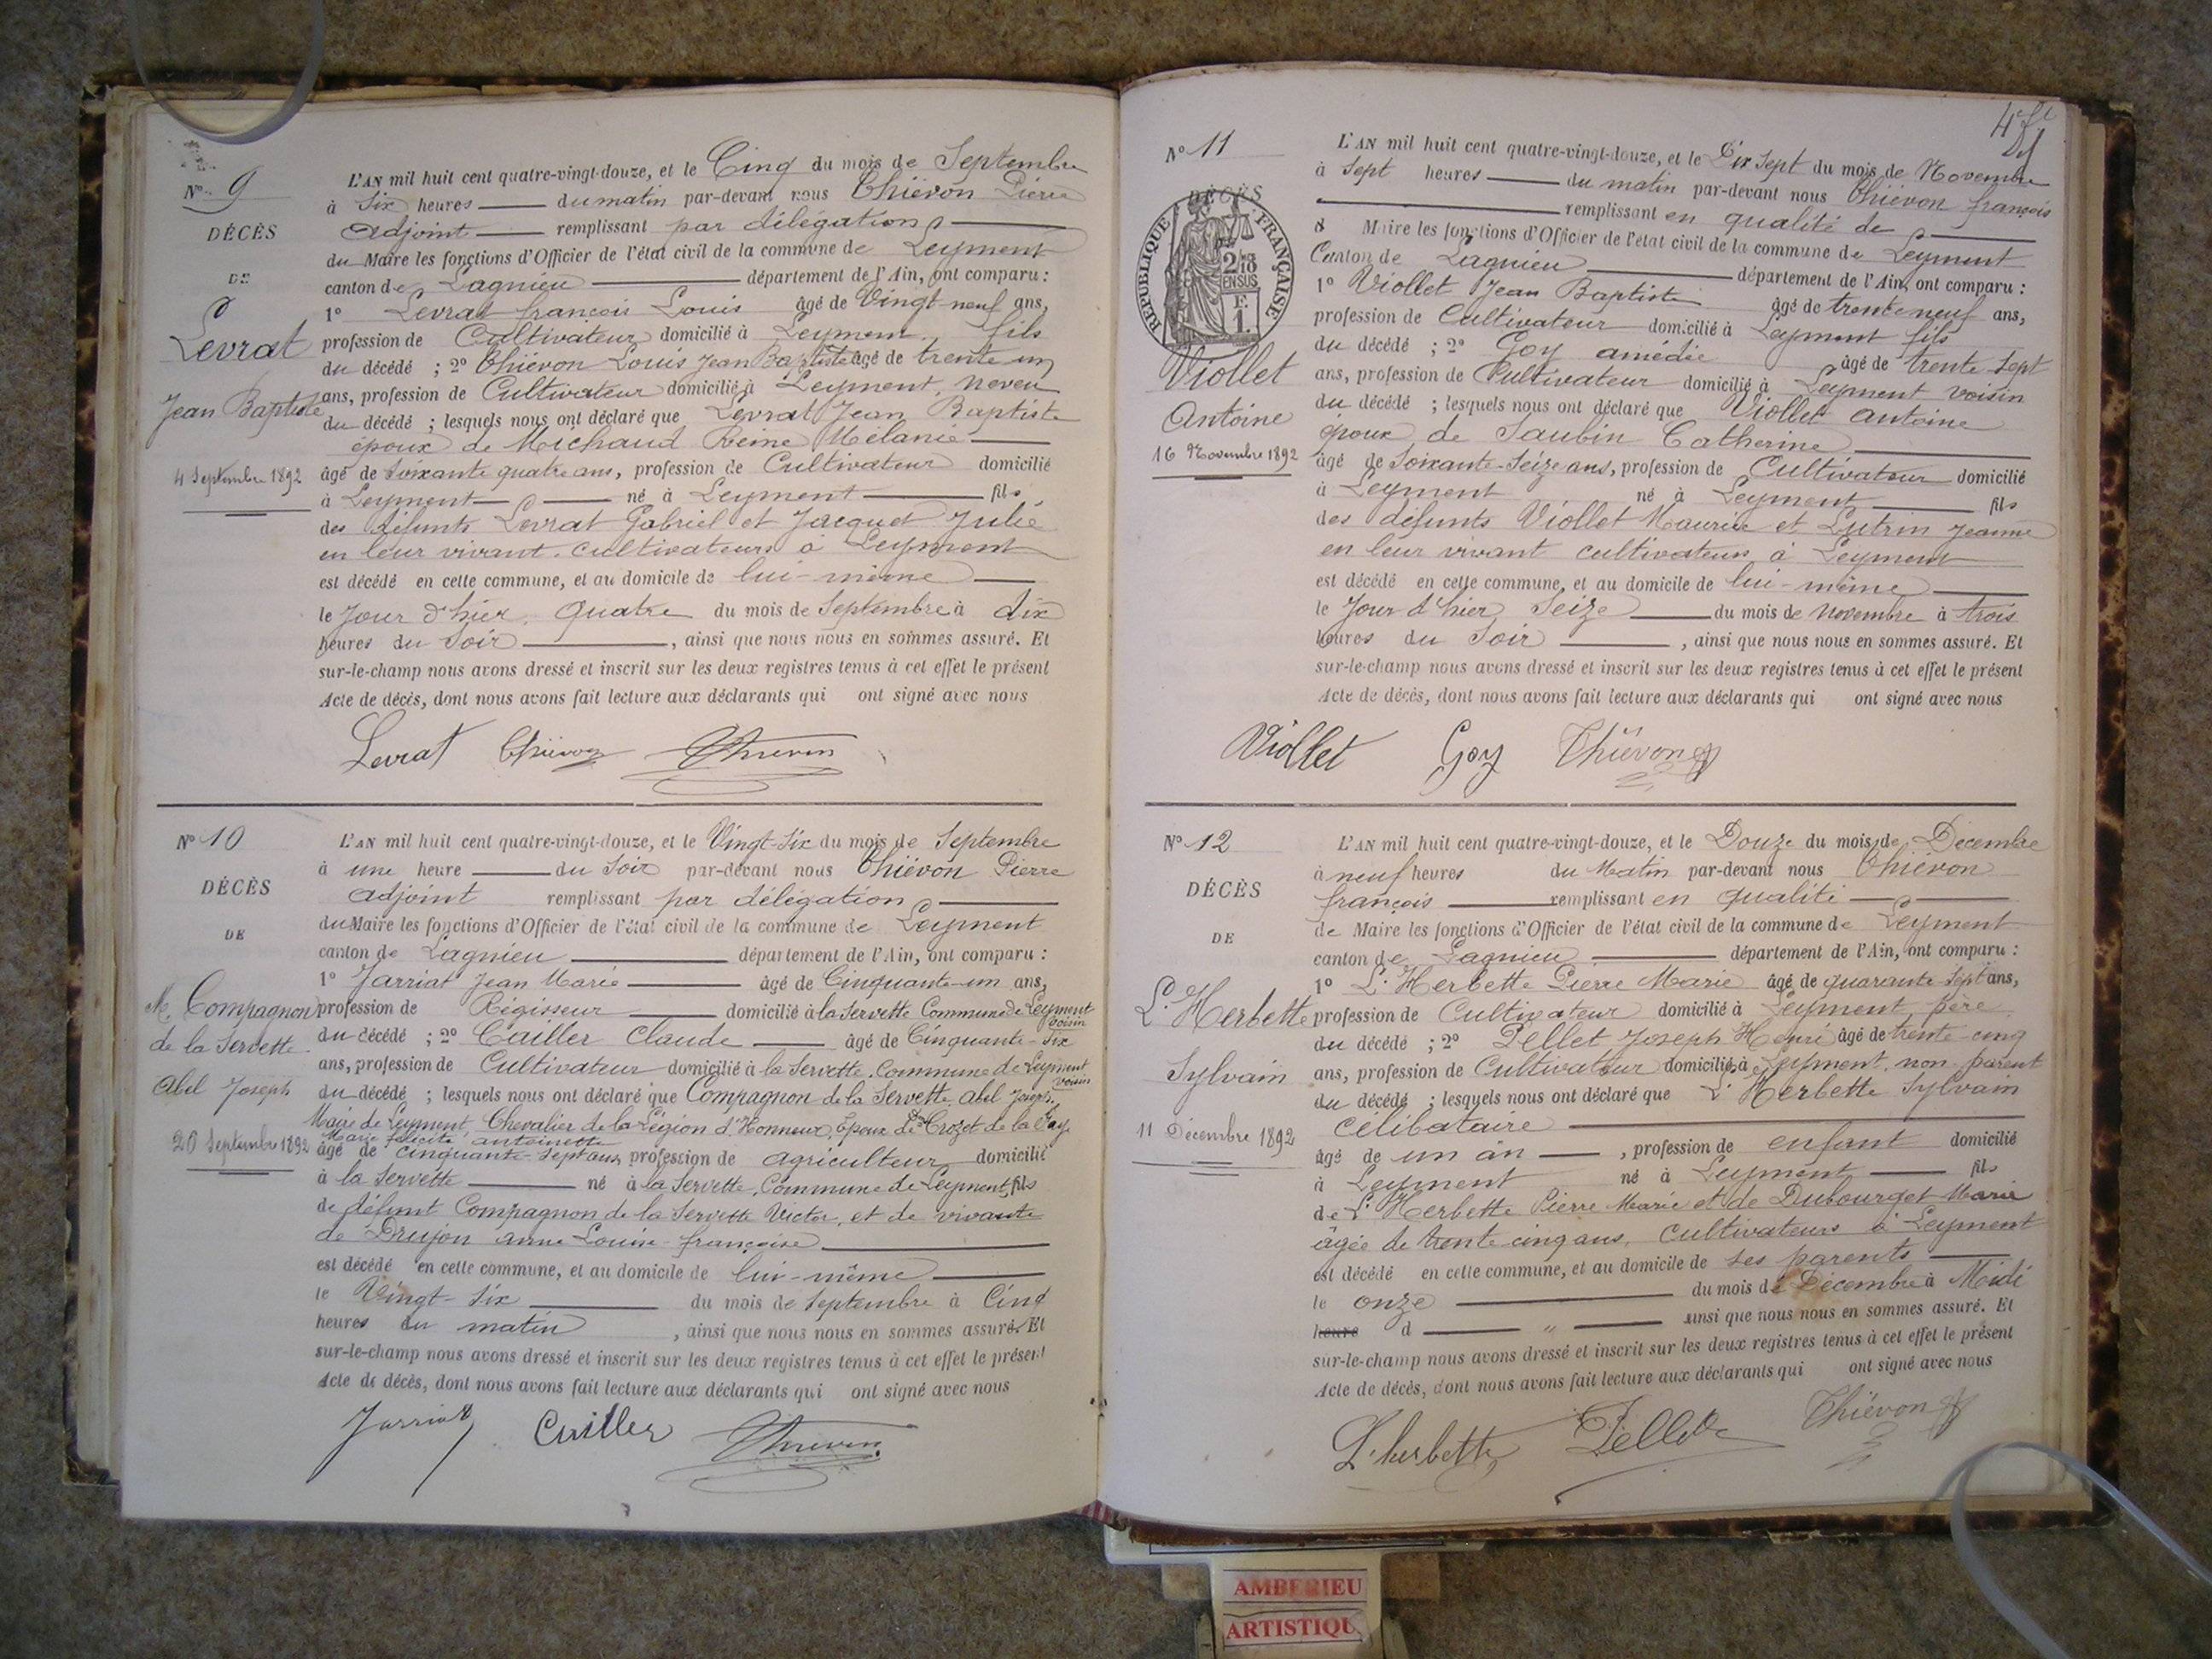 N° 9
DÉCÈS
DE
Levrat
Jean Baptiste
4 Septembre 1892
L'AN mil huit cent quatre-vingt-douze, et le Cinq du mois de Septembre
à Six heures du matin par-devant nous Thiévon Pierre
adjoint remplissant par délégation
du Maire les fonctions d'Officier de l'état civil de la commune de Leyment
canton de Lagnieu département de l'Ain, ont comparu :
1° Levrat françois Louis âgé de Vingt-neuf ans,
profession de Cultivateur domicilié à Leyment, fils
du décédé ; 2° Thiévon Louis Jean Baptiste âgé de trente un
ans, profession de Cultivateur domicilié à Leyment, neveu
du décédé ; lesquels nous ont déclaré que Levrat Jean Baptiste
époux de Michaud Reine Mélanie
âgé de Soixante quatre ans, profession de Cultivateur domicilié
à Leyment né à Leyment fils
des défunts Levrat Gabriel et Jacquet Julie
en leur vivant cultivateurs à Leyment
est décédé en cette commune, et au domicile de lui-même
le Jour d'hier, Quatre du mois de Septembre à dix
heures du Soir , ainsi que nous nous en sommes assuré. Et
sur-le-champ nous avons dressé et inscrit sur les deux registres tenus à cet effet le présent
Acte de décès, dont nous avons fait lecture aux déclarants qui ont signé avec nous
Levrat Thiévon Thievon
N° 10
DÉCÈS
DE
M. Compagnon
de la Servette
Abel Joseph
26 Septembre 1892
L'AN mil huit cent quatre-vingt-douze, et le Vingt-Six du mois de Septembre
à une heure du Soir par-devant nous Thiévon Pierre
adjoint remplissant par délégation
du Maire les fonctions d'Officier de l'état civil de la commune de Leyment
canton de Lagnieu département de l'Ain, ont comparu :
1° Jarriat Jean Marie âgé de Cinquante-un ans,
profession de Régisseur domicilié à la Servette Commune de Leyment
voisin
du décédé ; 2° Cailler Claude âgé de Cinquante-Six
ans, profession de Cultivateur domicilié à la Servette, Commune de Leyment
voisin
du décédé ; lesquels nous ont déclaré que Compagnon de la Servette, Abel Joseph,
Maire de Leyment, Chevalier de la Légion d'Honneur, Epoux de Crozet de la Fay
Marie félicité antoinette
âgé de Cinquante-Sept ans, profession de agriculteur domicilié
à la Servette né à la Servette, Commune de Leyment, fils
de défunt Compagnon de la Servette Victor, et de vivante
de Drujon anne Louise françoise
est décédé en cette commune, et au domicile de lui-même
le Vingt-Six du mois de Septembre à Cinq
heures du matin , ainsi que nous nous en sommes assuré. Et
sur-le-champ nous avons dressé et inscrit sur les deux registres tenus à cet effet le présent
Acte de décès, dont nous avons fait lecture aux déclarants qui ont signé avec nous
Jarriat Cailler Thievon
N° 11
DÉCÈS
RÉPUBLIQUE FRANÇAISE
2/10
EN SUS
F.
1.
Viollet
Antoine
16 Novembre 1892
L'AN mil huit cent quatre-vingt-douze, et le Dix Sept du mois de Novembre
à Sept heures du matin par-devant nous Thiévon françois
remplissant en qualité de
Maire les fonctions d'Officier de l'état civil de la commune de Leyment
Canton de Lagnieu département de l'Ain, ont comparu :
1° Viollet Jean Baptiste âgé de trente neuf ans,
profession de Cultivateur domicilié à Leyment fils
du décédé ; 2° Goy amédée âgé de trente-Sept
ans, profession de Cultivateur domicilié à Leyment voisin
du décédé ; lesquels nous ont déclaré que Viollet antoine
époux de Saubin Catherine
âgé de Soixante-Seize ans, profession de Cultivateur domicilié
à Leyment né à Leyment fils
des défunts Viollet Maurice et Lutrin Jeanne
en leur vivant cultivateurs à Leyment
est décédé en cette commune, et au domicile de lui-même
le Jour d'hier Seize du mois de Novembre à trois
heures du Soir , ainsi que nous nous en sommes assuré. Et
sur-le-champ nous avons dressé et inscrit sur les deux registres tenus à cet effet le présent
Acte de décès, dont nous avons fait lecture aux déclarants qui ont signé avec nous
Viollet Goy Thiévon
N° 12
DÉCÈS
DE
L'Herbette
Sylvain
11 Décembre 1892
L'AN mil huit cent quatre-vingt-douze, et le Douze du mois de Décembre
à neuf heures du Matin par-devant nous Thiévon
françois remplissant en qualité
de Maire les fonctions d'Officier de l'état civil de la commune de Leyment
canton de Lagnieu département de l'Ain, ont comparu :
1° L'Herbette Pierre Marie âgé de quarante-Sept ans,
profession de Cultivateur domicilié à Leyment, père
du décédé ; 2° Pellet Joseph Henri âgé de trente-cinq
ans, profession de Cultivateur domicilié à Leyment, non parent
du décédé ; lesquels nous ont déclaré que L'Herbette Sylvain
célibataire
âgé de un an , profession de enfant domicilié
à Leyment né à Leyment fils
de L'Herbette Pierre Marie et de Dubourget Marie
âgée de trente cinq ans, Cultivateurs à Leyment
est décédé en cette commune, et au domicile de ses parents
le onze du mois de Décembre à Midi
heure d " ainsi que nous nous en sommes assuré. Et
sur-le-champ nous avons dressé et inscrit sur les deux registres tenus à cet effet le présent
Acte de décès, dont nous avons fait lecture aux déclarants qui ont signé avec nous
L'herbette Pellet Thiévon
AMBERIEU
ARTISTIQU